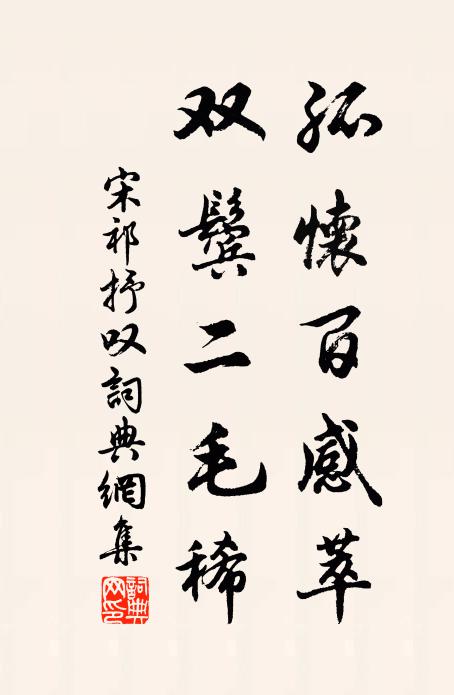 孤懷百感萃
双鬓二毛稀
宋祁抒叹詞典網集
詞典网印